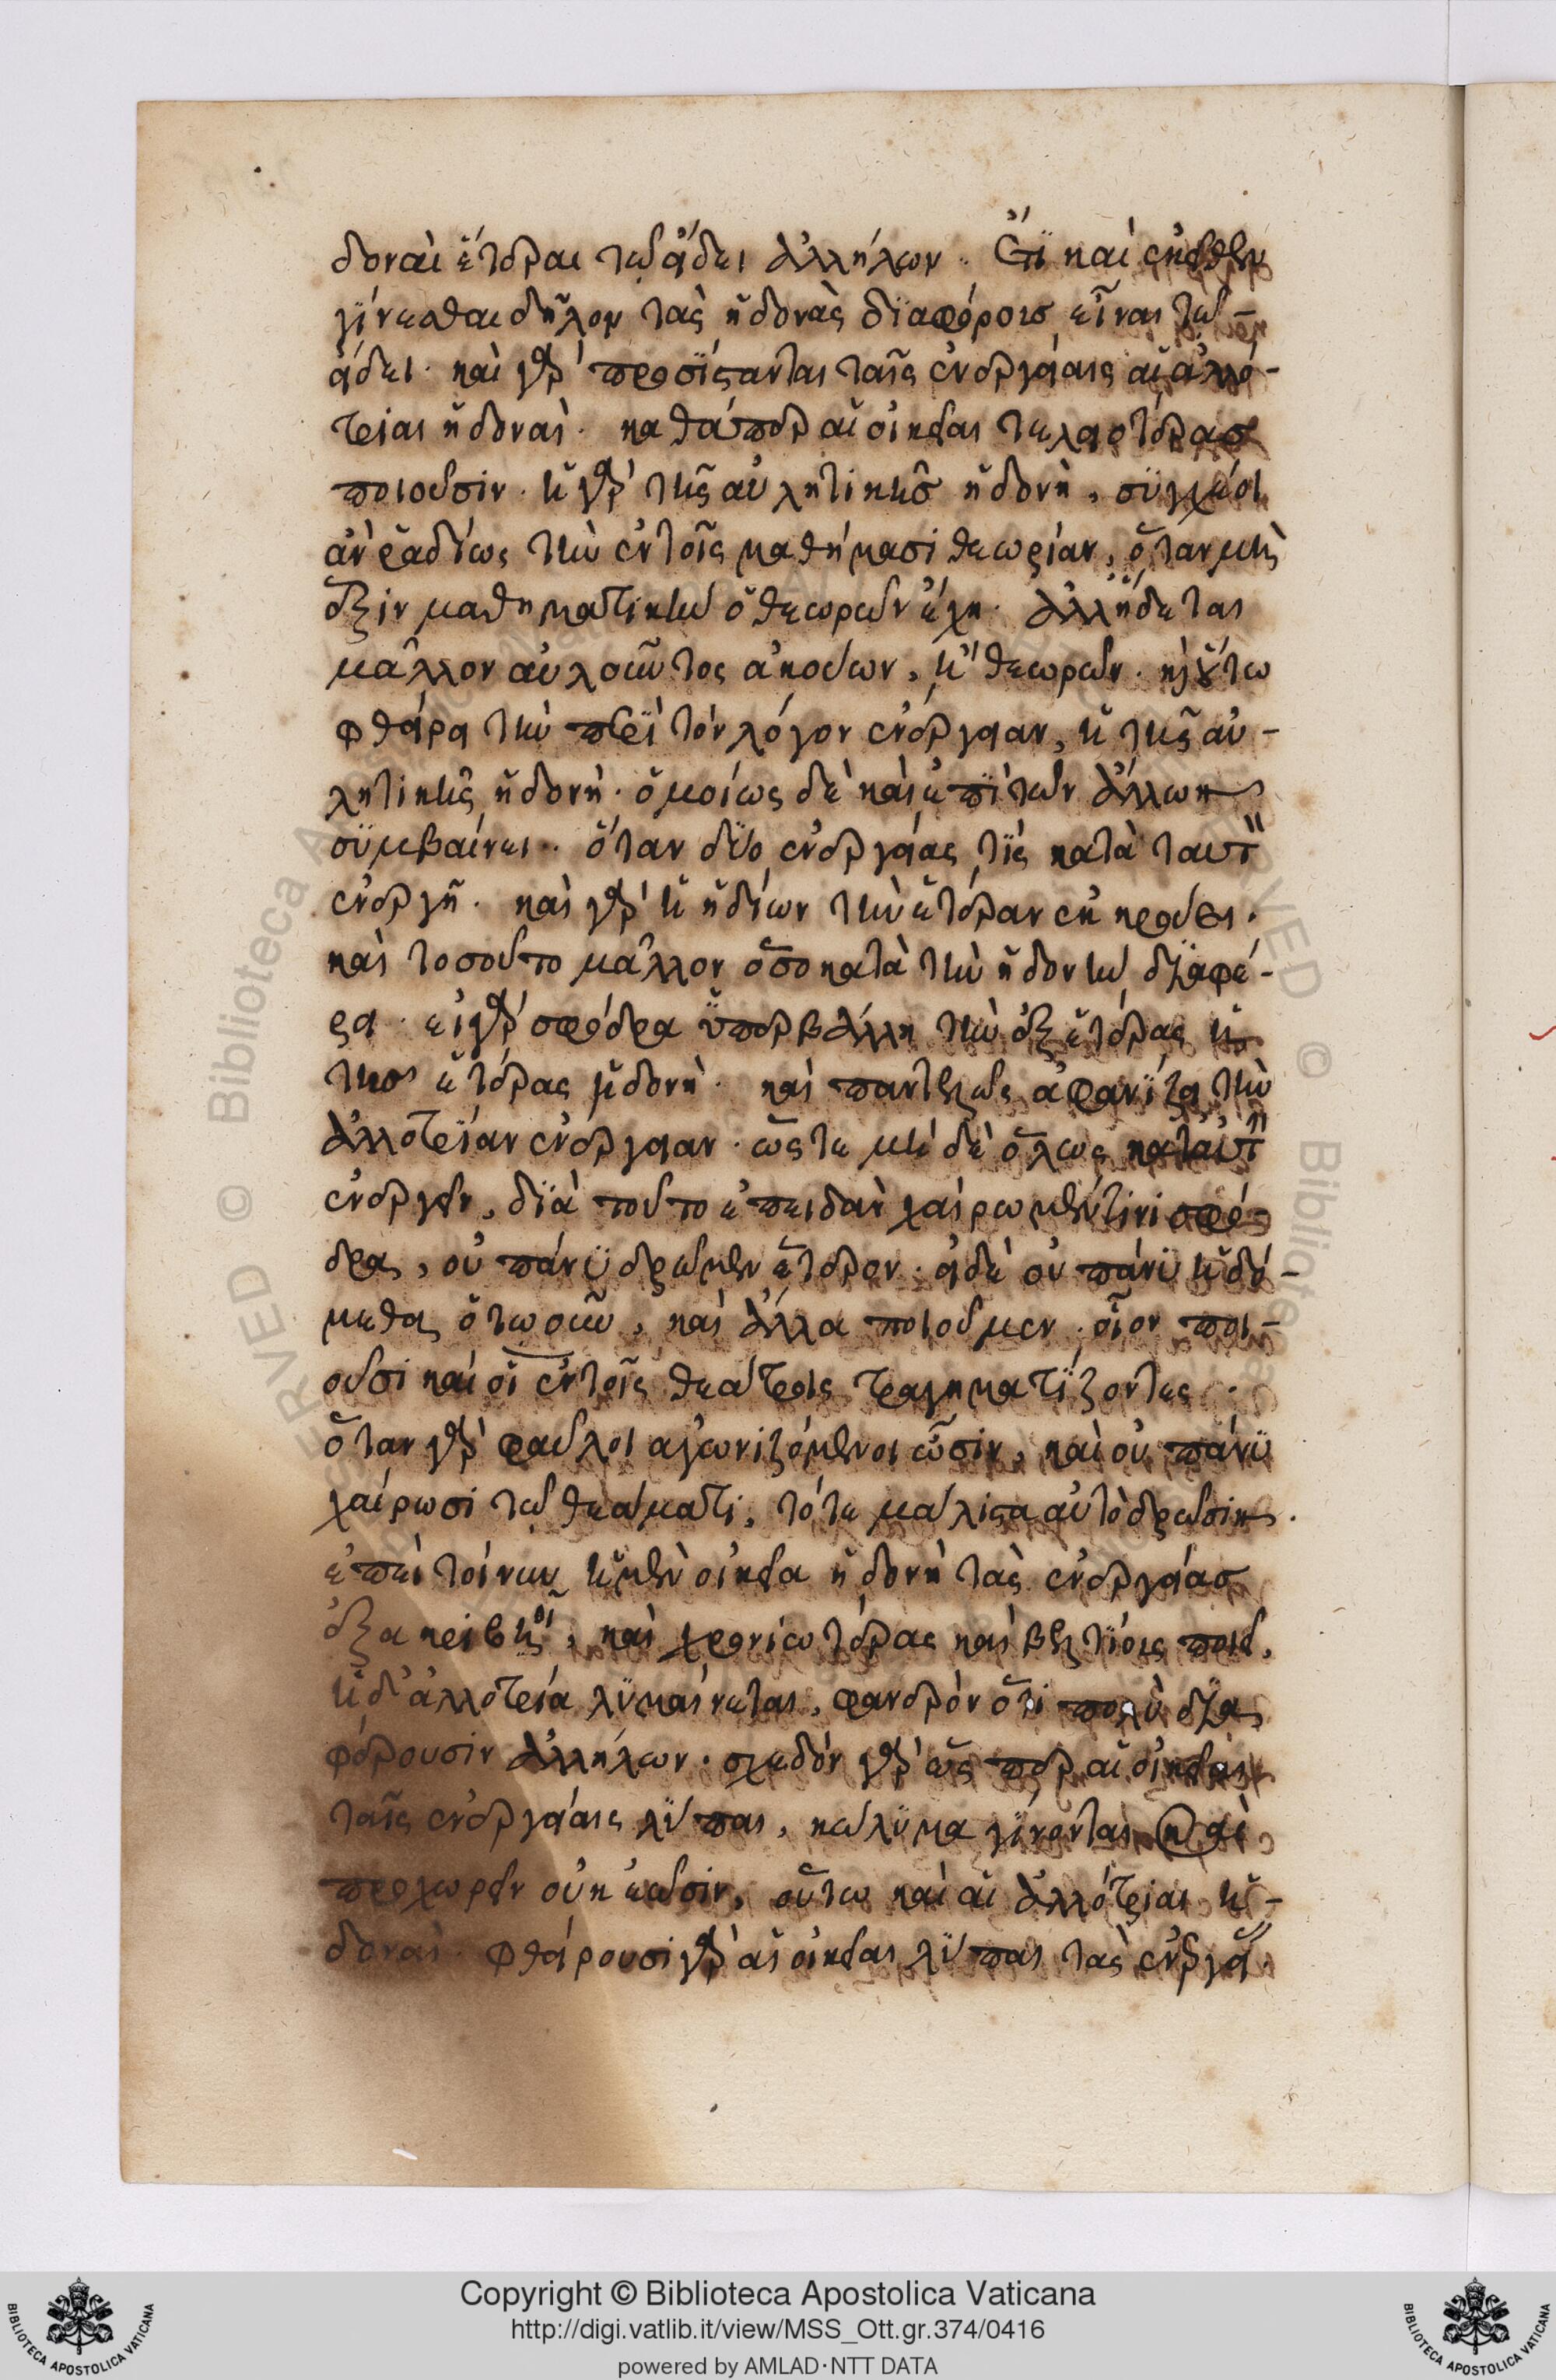 δοναὶ ἕτεραι τῶ εἴδει ἀλλήλων. Ἔτι καὶ ἐκεῖθεν
γίνεσθαι δῆλον τὰς ἡδονὰς διαφόροις εἶναι τῶ
εἴδει. καὶ γὰρ προσίστανται ταῖς ἐνεργείαις αἱ ἀλλό-
τριαι ἡδοναί. καθάπερ αἱ οἰκεῖαι τελειοτέρας
ποιοῦσιν. ἡ γὰρ τῆς αὐλητικῆς ἡδονὴ, συγχέοι
ἂν ῥαδίως τὴν ἐν τοῖς μαθήμασι θεωρίαν, ὅταν μὴ
ἕξιν μαθηματικὴν ὁ θεωρῶν ἔχη. ἀλλ' ἥδεται
μᾶλλον αὐλοῦντος ἀκούων, ἢ θεωρῶν. καὶ οὕτω
φθείρει τὴν περὶ τὸν λόγον ἐνέργειαν, ἡ τῆς αὐ-
λητικῆς ἡδονή. ὁμοίως δὲ καὶ ἐπὶ τῶν ἄλλων
συμβαίνει. ὅταν δύο ἐνεργείας τὶς κατὰ ταυτὸν
ἐνεργῆ. καὶ γὰρ ἡ ἡδίων τὴν ἑτέραν ἐκκρούει.
καὶ τοσοῦτο μᾶλλον ὅσο κατὰ τὴν ἡδονὴν διαφέ-
ρει. εἰ γὰρ σφόδρα ὑπερβάλλη τὴν ἐξ ἑτέρας ἡ
τῆς ἑτέρας ἡδονή. καὶ παντελῶς ἀφανίζει τὴν
ἀλλοτρίαν ἐνέργειαν. ὥστε μὴ δὲ ὅλως κατ' αὐτὴν
ἐνεργεῖν, διὰ τοῦτο ἐπειδὰν χαίρωμέν τινι σφό-
δρα, οὐ πάνυ δρῶμεν ἕτερον. εἰ δὲ οὐ πάνυ ἡδό-
μεθα ὁτωοῦν, καὶ ἄλλα ποιοῦμεν. οἷον ποι-
οῦσι καὶ οἱ ἐν τοῖς θεάτροις τραγηματίζοντες.
ὅταν γὰρ φαῦλοι ἀγωνιζόμενοι ὦσιν, καὶ οὐ πάνυ
χαίρωσι τῶ θεάματι, τότε μάλιστα αὐτὸ δρῶσιν.
ἐπεὶ τοίνυν ἡ μὲν οἰκεία ἡδονὴ τὰς ἐνεργείας
ἐξακριβοῖ, καὶ χρονιωτέρας καὶ βελτίοις ποιεῖ,
ἡ δ' ἀλλοτρία λυμαίνεται, φανερὸν ὅτι πολὺ δια
φέρουσιν ἀλλήλων. σχεδὸν γὰρ ὥσπερ αἱ οἰκεῖαι
ταῖς ἐνεργείαις λῦπαι, κώλυμα γίνονται καὶ
προχωρεῖν οὐκ ἐῶσιν, οὕτω καὶ αἱ ἀλλότριαι ἡ-
δοναί. φθείρουσι γὰρ αἱ οἰκεῖαι λῦπαι τὰς ἐνεργεί
Copyright © Biblioteca Apostolica Vaticana
http://digi.vatlib.it/view/MSS_Ott.gr.374/0416
powered by AMLAD·NTT DATA
BIBLIOTECA APOSTOLICA VATICANA
BIBLIOTECA APOSTOLICA VATICANA